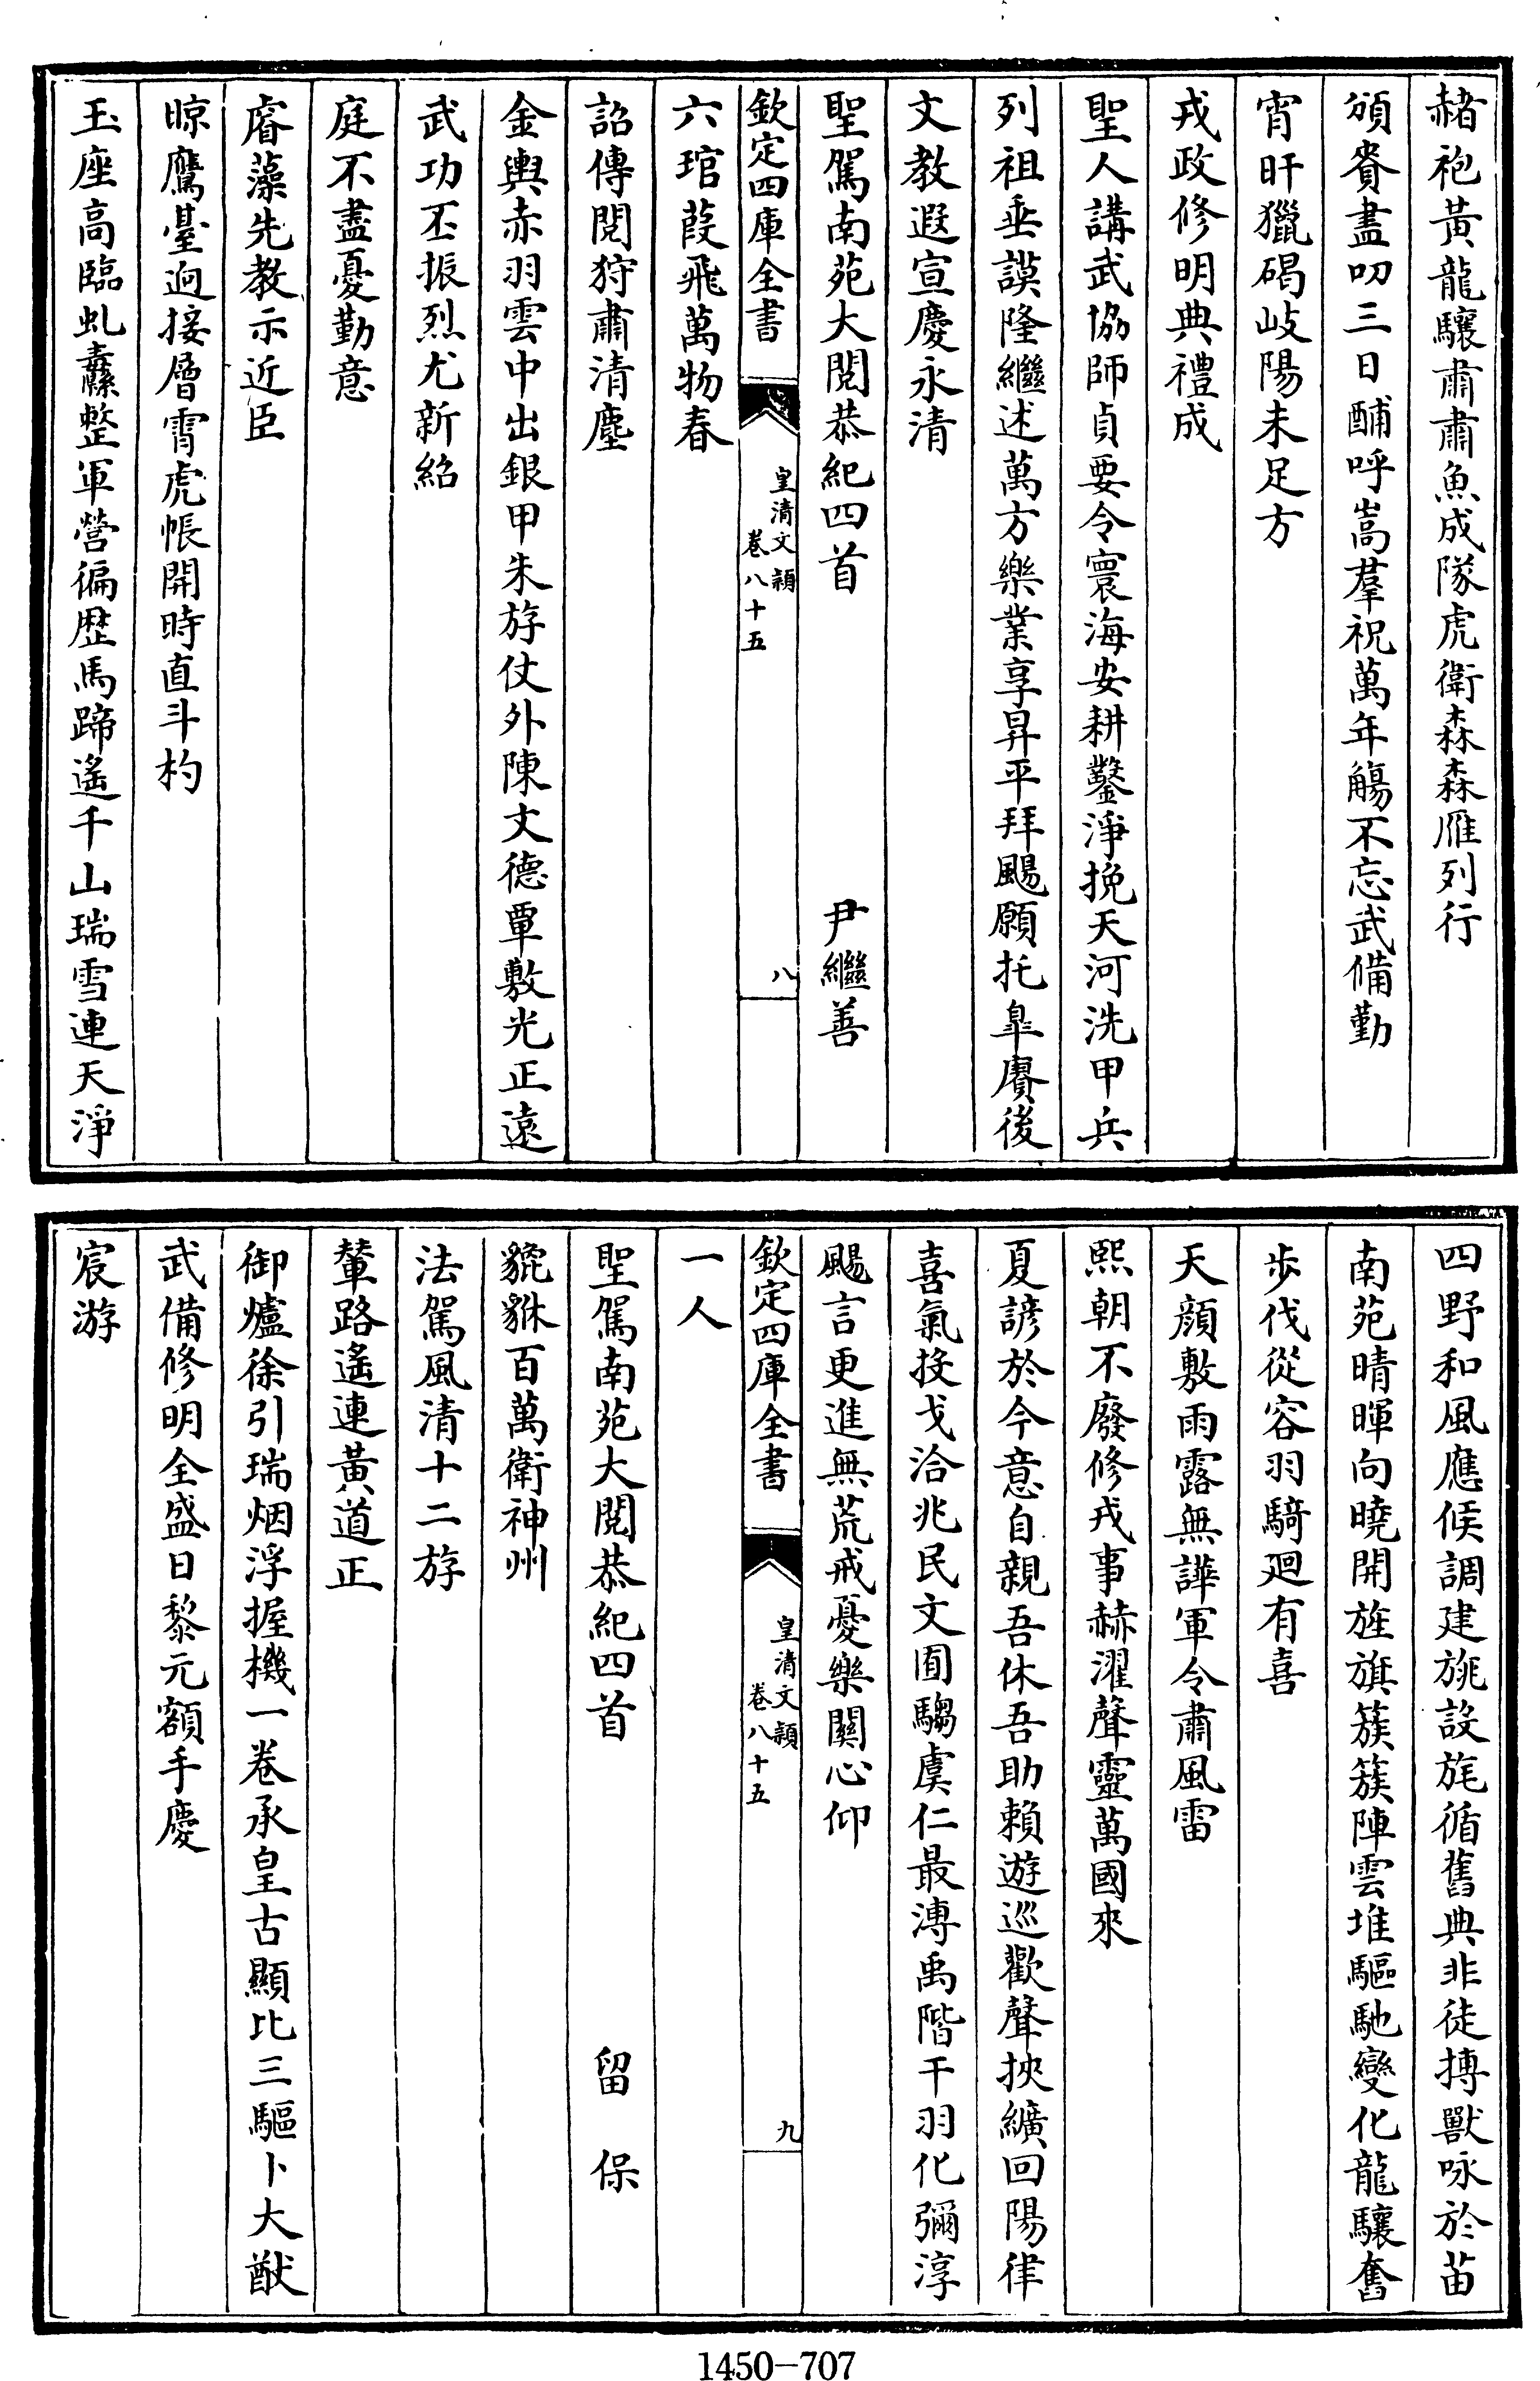 赭袍黃龍驤肅肅魚成隊虎衛森森雁列行
頒賚盡叨三日酺呼嵩羣祝萬年觴不忘武備勤
宵旰獵碣岐陽未足方
戎政修明典禮成
聖人講武協師貞要令寰海安耕鑿淨挽天河洗甲兵
列祖垂謨隆繼述萬方樂業享昇平拜颺願托臯賡後
文教遐宣慶永清
聖駕南苑大閱恭紀四首　尹繼善
欽定四庫全書　皇清文穎　卷八十五　八
六琯葭飛萬物春
詔傳閱狩肅清塵
金輿赤羽雲中出銀甲朱斿仗外陳文德覃敷光正遠
武功丕振烈尤新紹
庭不盡憂勤意
睿藻先教示近臣
晾鷹臺迥接層霄虎帳開時直斗杓
玉座高臨虬纛整軍營徧歷馬蹄遙千山瑞雪連天淨
四野和風應候調建旐設旄循舊典非徒搏獸咏於苗
南苑晴暉向曉開旌旗簇簇陣雲堆驅馳變化龍驤奮
步伐從容羽騎廻有喜
天顏敷雨露無譁軍令肅風雷
熙朝不廢修戎事赫濯聲靈萬國來
夏諺於今意自親吾休吾助賴遊巡歡聲挾纊回陽律
喜氣投戈洽兆民文囿騶虞仁最溥禹階干羽化彌淳
颺言更進無荒戒憂樂關心仰
欽定四庫全書　皇清文穎　卷八十五　九
一人
聖駕南苑大閱恭紀四首　留保
貔貅百萬衛神州
法駕風清十二斿
輦路遙連黃道正
御爐徐引瑞烟浮握機一卷承皇古顯比三驅卜大猷
武備修明全盛日黎元額手慶
宸游
1450-707